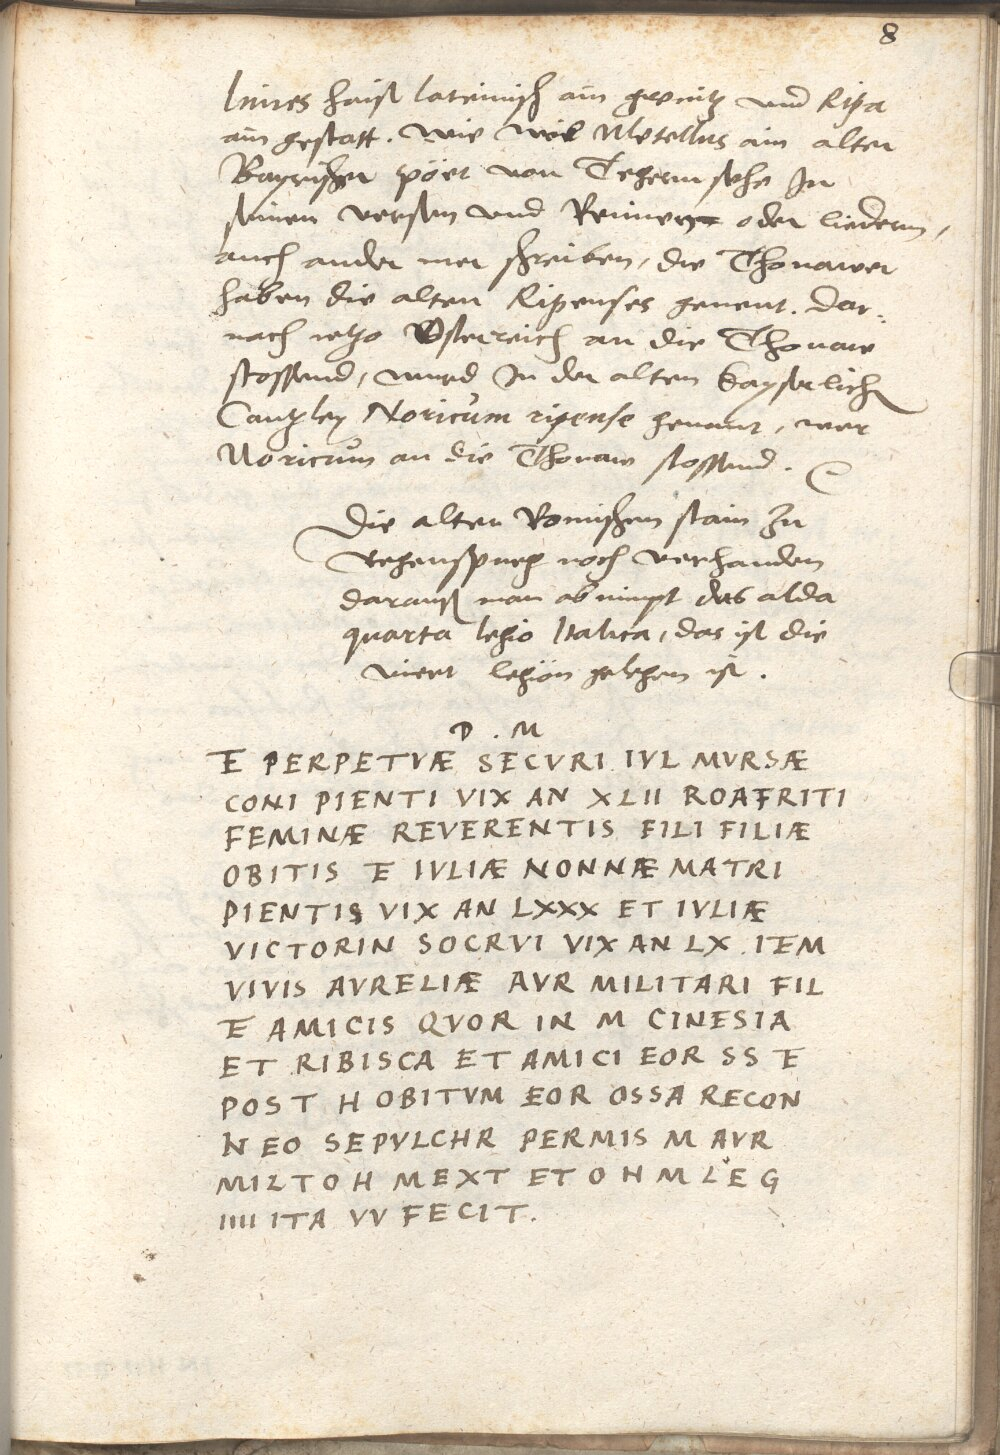 8
limes haist lateinisch ain grenitz und Ripa
ain gestatt. wie Metellus ain alter
Bayrischer pöet von Tegernsehe In
seinen versen und Reimen oder liedern,
auch ander mer schreiben, die Thonawer
haben die alten Ripenses genent. dar-
nach ietzo Osterreich an die Thonaw
stossend, wurd In der alten kayserlich
Cantzley Noricum ripense genant, wer
Noricum an die Thonaw stossend.
Die alten Romischen stain Zu
regenspurg noch verhanden
darauß man abnimpt das alda
quarta legio Italica, das ist die
viert legion gelegen ist.
D . M
E PERPETVÆ SECVRI IVL MVRSÆ
CONI PIENTI VIX AN XLII ROAFRITI
FEMINÆ REVERENTIS FILI FILIÆ
OBITIS E IVLIÆ NONNÆ MATRI
PIENTIS VIX AN LXXX ET IVLIÆ
VICTORIN SOCRVI VIX AN LX . ITEM
VIVIS AVRELIÆ AVR MILITARI FIL
E AMICIS QVOR IN M CINESIA
ET RIBISCA ET AMICI EOR SS E
POST H OBITVM EOR OSSA RECON
N EO SEPVLCHR PERMIS M AVR
MILTO H M EXT ET O H M LEG
IIII ITA VV FECIT.